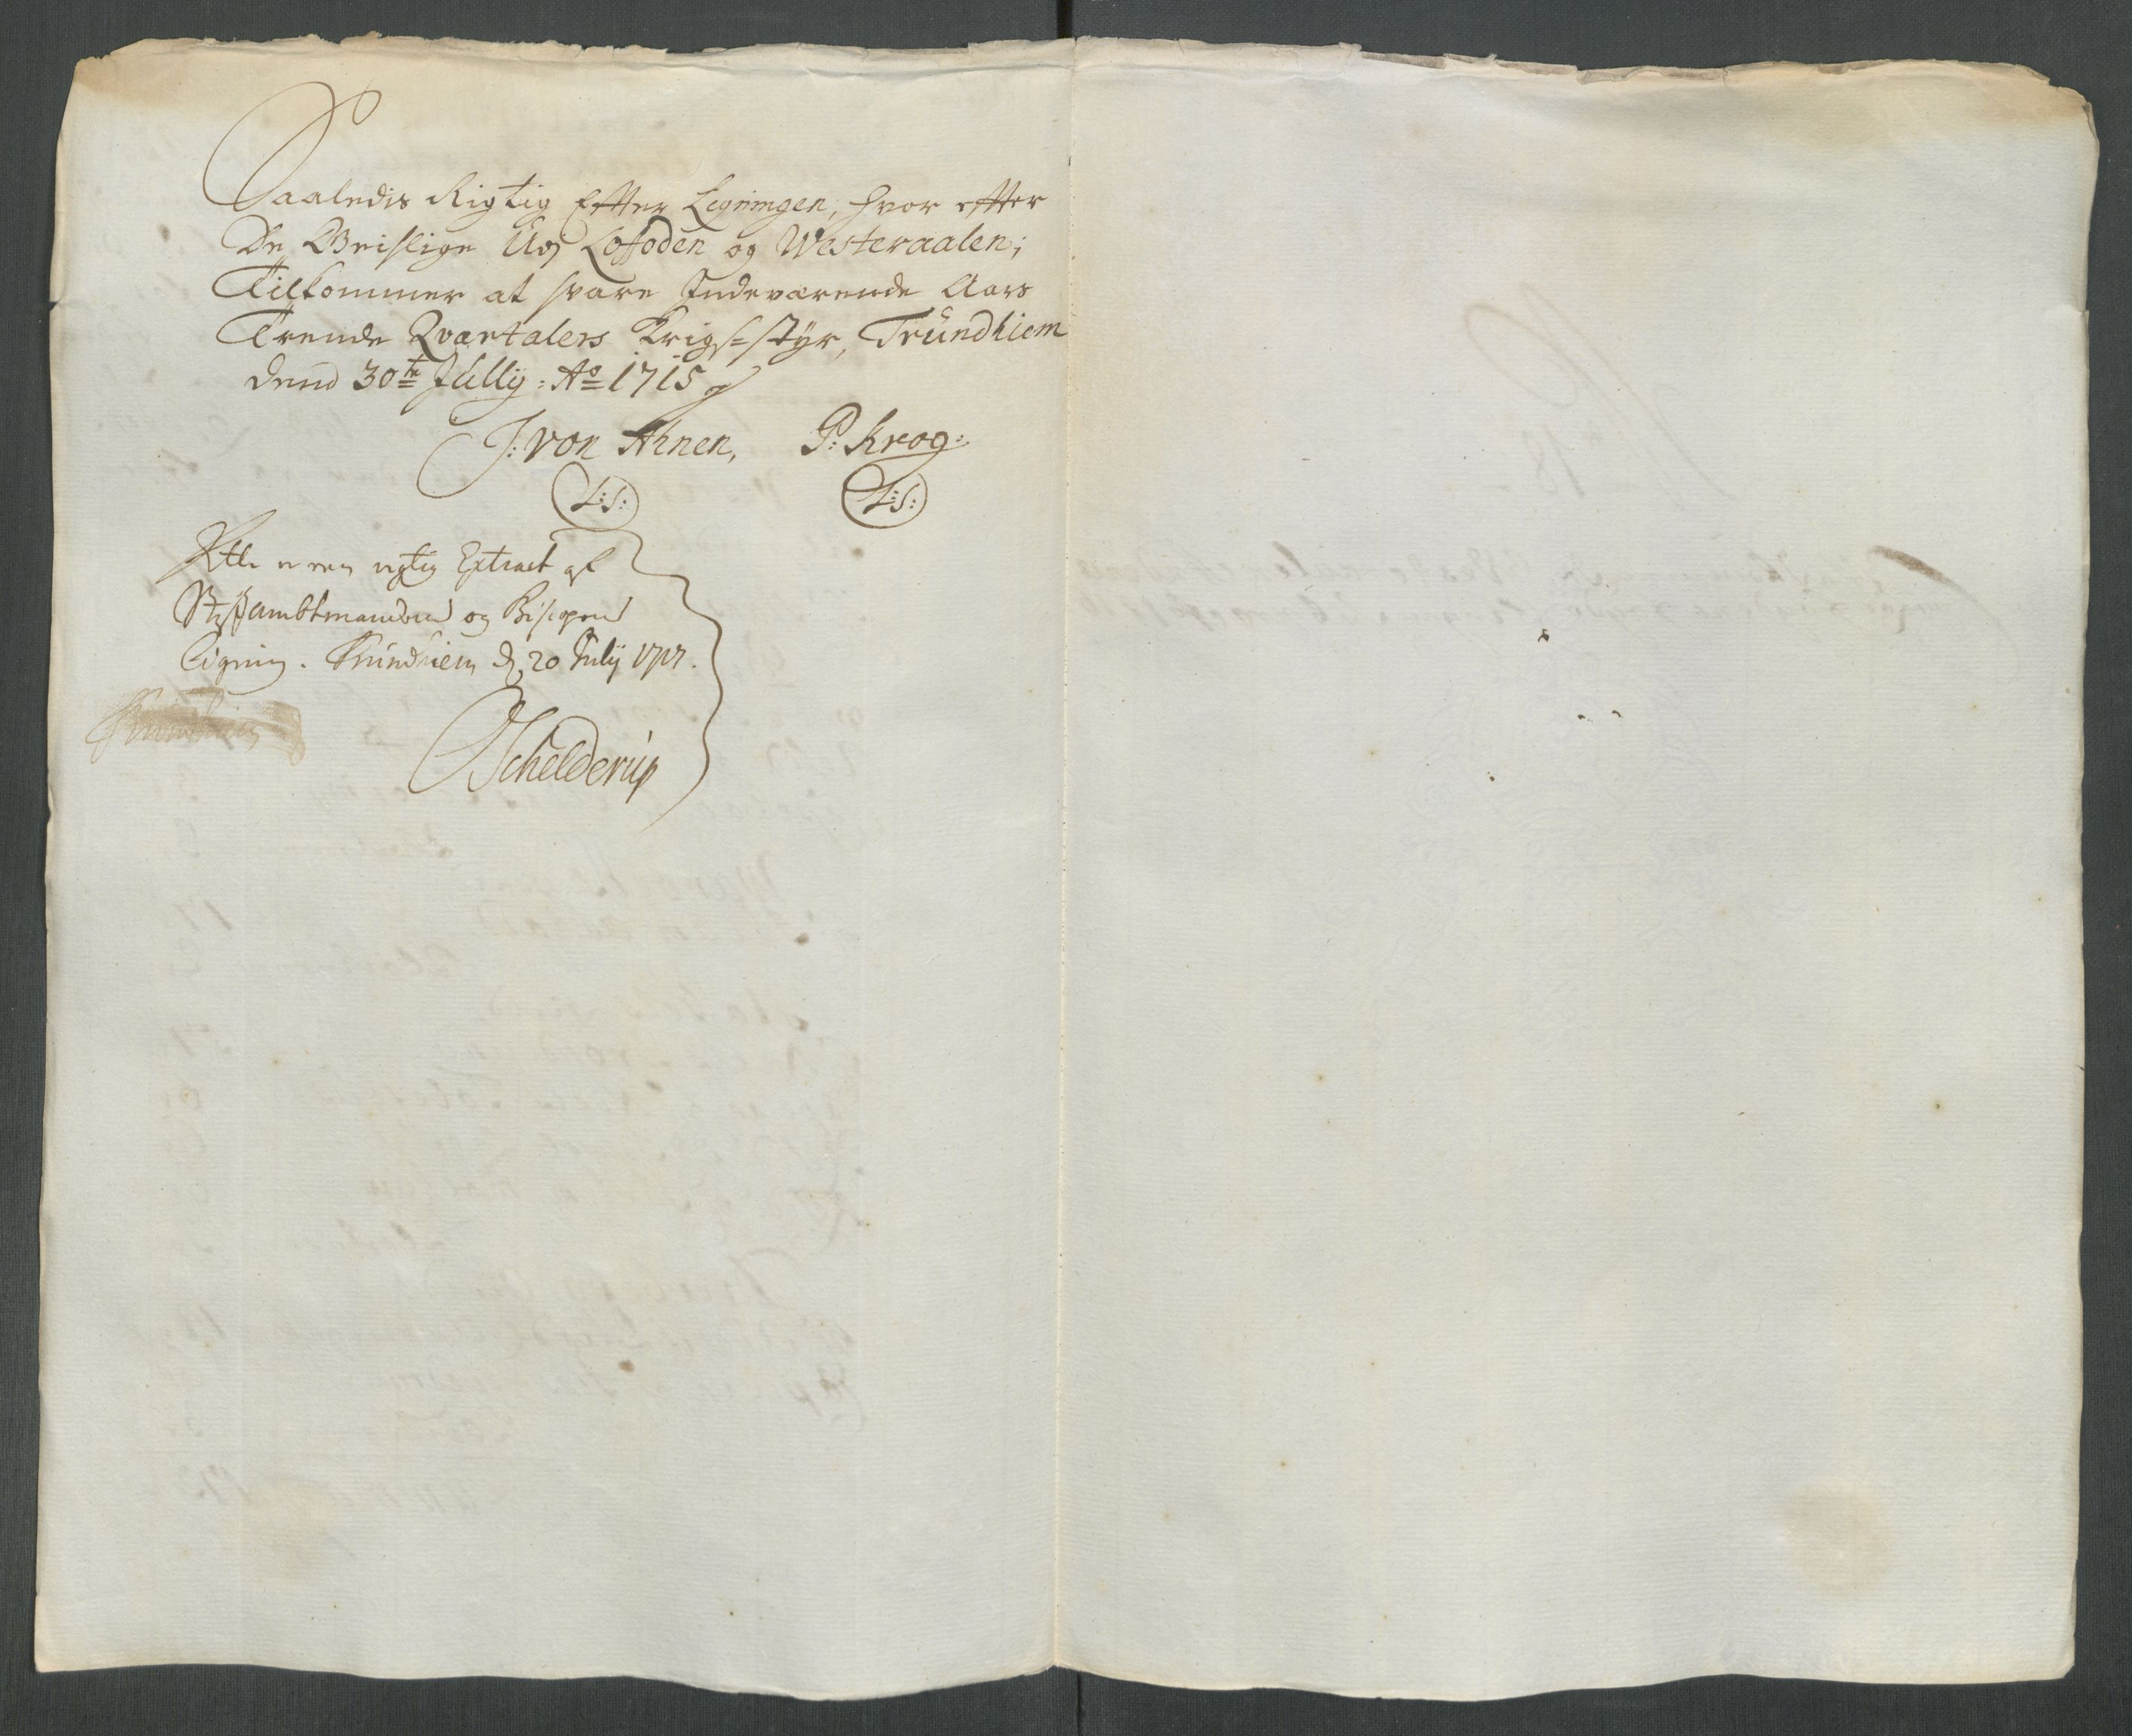 Saaledis Rigtig Efter Legningen, hvor efter
De Geislige Udj Loffoden og Westeraalen;
Tilkommer at svare Indeværende Aars
Trende Qvartalers Krigs=styr, Trundhiem
dend 30te Jully: Ao 1715
J: von Ahnen, P: Krog:
L:S: L:S:
Dette er een rigtig Extract af
Stiftambtmandens og Bispens
Ligning. Trundhiem d 20 Julij 1717.
Trundhiem
OSchelderup